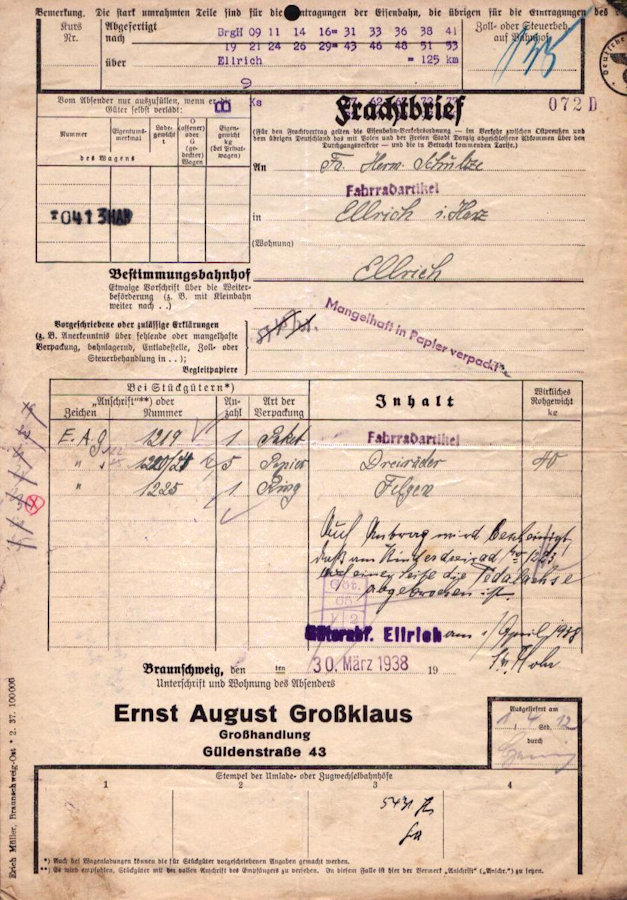 Bemerkung. Die stark umrahmten Teile sind für die Eintragungen der Eisenbahn, die übrigen für die Eintragungen des
Kurs Nr.
Abgefertigt
nach
BrgH 09 11 14 16= 31 33 36 38 41
19 21 24 26 29= 43 46 48 51 53
über
Ellrich = 125 km
9
Zoll- oder Steuerbeh.
auf Bahnhof
Vom Absender nur auszufüllen, wenn er die
Güter selbst verlädt:
B
Ks
Frachtbrief
072 D
(Für den Frachtvertrag gelten die Eisenbahn-Verkehrsordnung — im Verkehr zwischen Ostpreußen und
dem übrigen Deutschland das mit Polen und der Freien Stadt Danzig abgeschlossene Abkommen über den
Durchgangsverkehr — und die in Betracht kommenden Tarife.)
Nummer
Eigentumsmerkmal
Ladegewicht t
O (offener) oder G (gedeckter) Wagen
Eigengewicht kg (bei Privatwagen)
des Wagens
An
Fa. Herm. Schultze
Fahrradartikel
0413HAN
in
Ellrich i. Harz
(Wohnung)
Bestimmungsbahnhof
Ellrich
Etwaige Vorschrift über die Weiterbeförderung (z. B. mit Kleinbahn
weiter nach . .)
Mangelhaft in Papier verpackt
Vorgeschriebene oder zulässige Erklärungen
(z. B. Anerkenntnis über fehlende oder mangelhafte
Verpackung, bahnlagernd, Entladestelle, Zoll- oder
Steuerbehandlung in . .);
Begleitpapiere
Bei Stückgütern*)
„Anschrift"**) oder
Zeichen
Nummer
Anzahl
Art der Verpackung
Inhalt
Wirkliches Rohgewicht kg
E.A.G. 1219 1 Paket Fahrradartikel
" 5 Papier Dreiräder 40
" 1225 1 Ring Felgen
Auf Antrag wird bescheinigt,
daß am Kinderdreirad
die Pedalachse
abgebrochen ist.
Güterabf. Ellrich am 1/April 1938
Braunschweig, den
ten
30. März 1938
19
Unterschrift und Wohnung des Absenders
Ernst August Großklaus
Großhandlung
Güldenstraße 43
Ausgeliefert am
1 4 12
Std.
durch
Stempel der Umlade- oder Zugwechselbahnhöfe
1 2 3 4
5431
*) Auch bei Wagenladungen können die für Stückgüter vorgeschriebenen Angaben gemacht werden.
**) Es wird empfohlen, Stückgüter mit der vollen Anschrift des Empfängers zu versehen. In diesem Falle ist hier der Vermerk „Anschrift" („Anschr.") zu setzen.
Erich Müller, Braunschweig-Ost * 2. 37. 100000